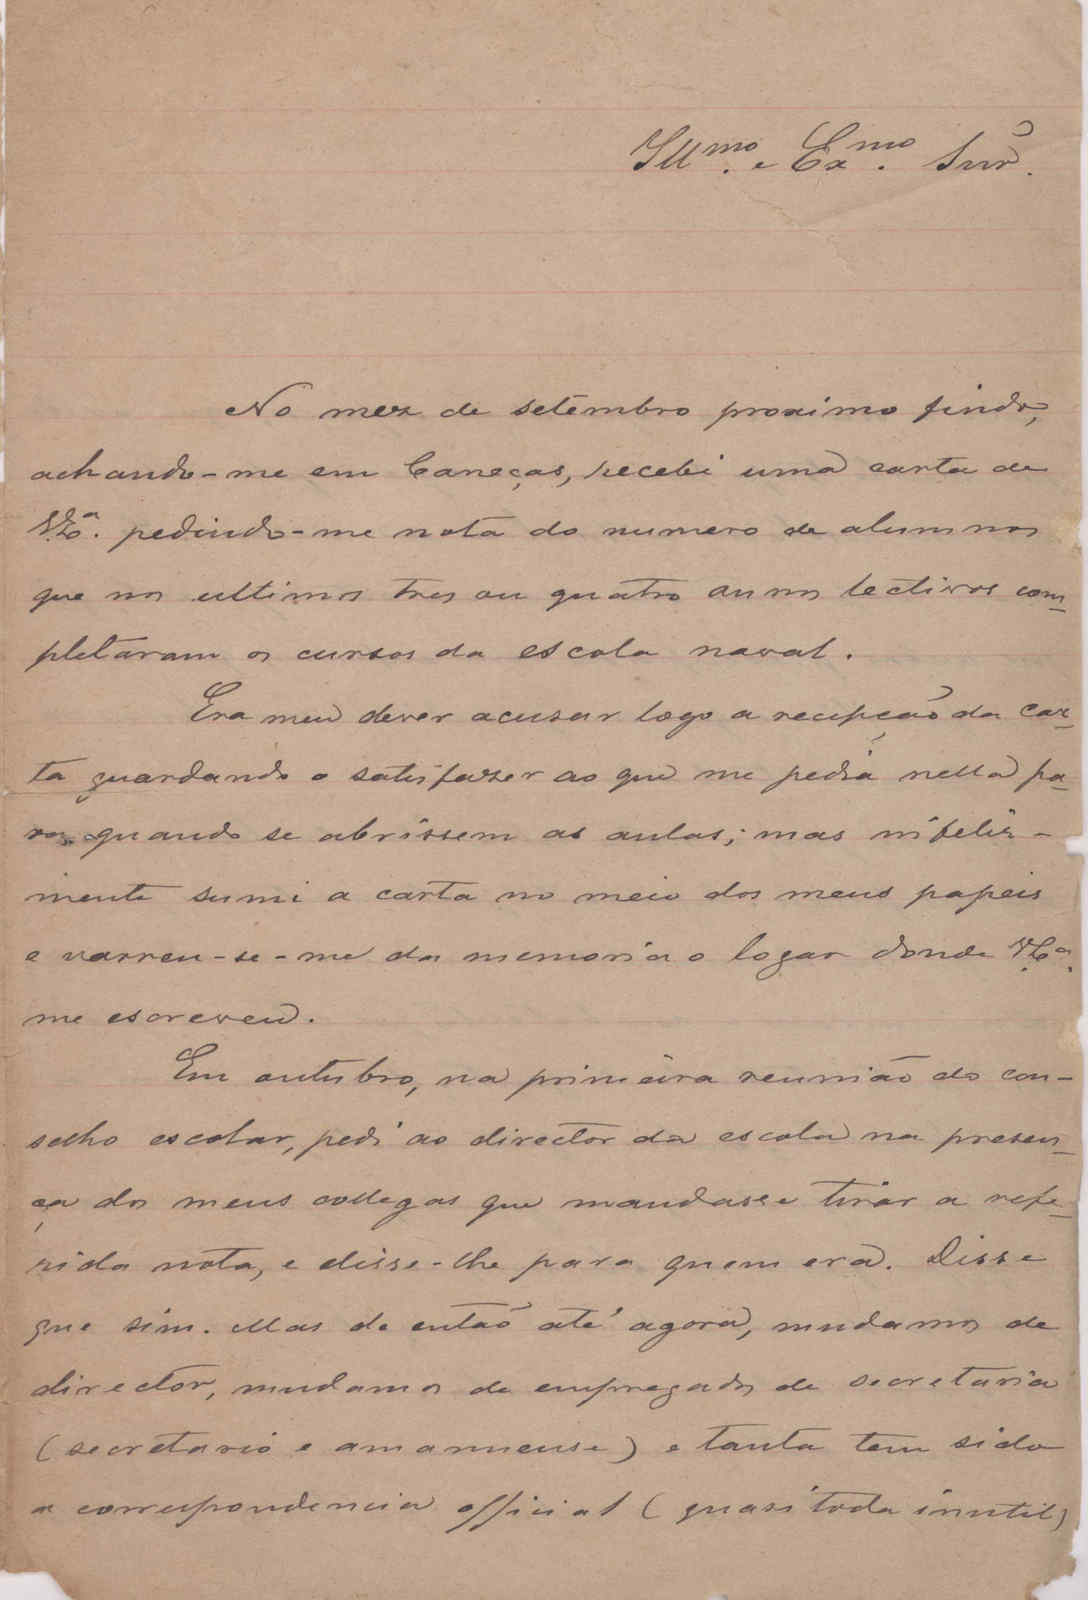 Illmo. e Exmo. Snr.
No mez de setembro proximo findo,
achando-me em Caneças, recebi uma carta de
V. Ex.ª pedindo-me nota do numero de alumnos
que nos ultimos tres ou quatro annos lectivos com-
pletaram os cursos da escola naval.
Era meu dever acusar logo a recepção da car-
ta guardando o satisfazer ao que me pedia nella pa-
ra quando se abrissem as aulas; mas infeliz-
mente sumi a carta no meio dos meus papeis
e varreu-se-me da memoria o logar donde V. Ex.ª
me escreveu.
Em outubro, na primeira reunião do con-
selho escolar, pedi ao director da escola na presen-
ça dos meus collegas que mandasse tirar a refe-
rida nota, e disse-lhe para quem era. Disse
que sim. Mas de então até agora, mudamos de
director, mudamos de empregados de secretaria
(secretario e amanuense) e tanta tem sido
a correspondencia official (quasi toda inutil)